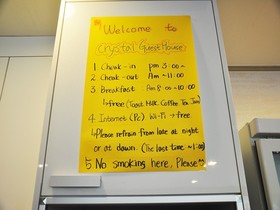 Welcome to
Crystal Guest House
1. Check-in pm 3:00~
2. Check-out Am ~11:00
3. Breakfast Am 8:00~10:00
↳free (Toast Milk Coffee Tea Jam)
4. Internet (Pc) Wi-Fi → free.
↳Please refrain from late at night
or at dawn. (The last time ~1:00)
5 No smoking here, Please